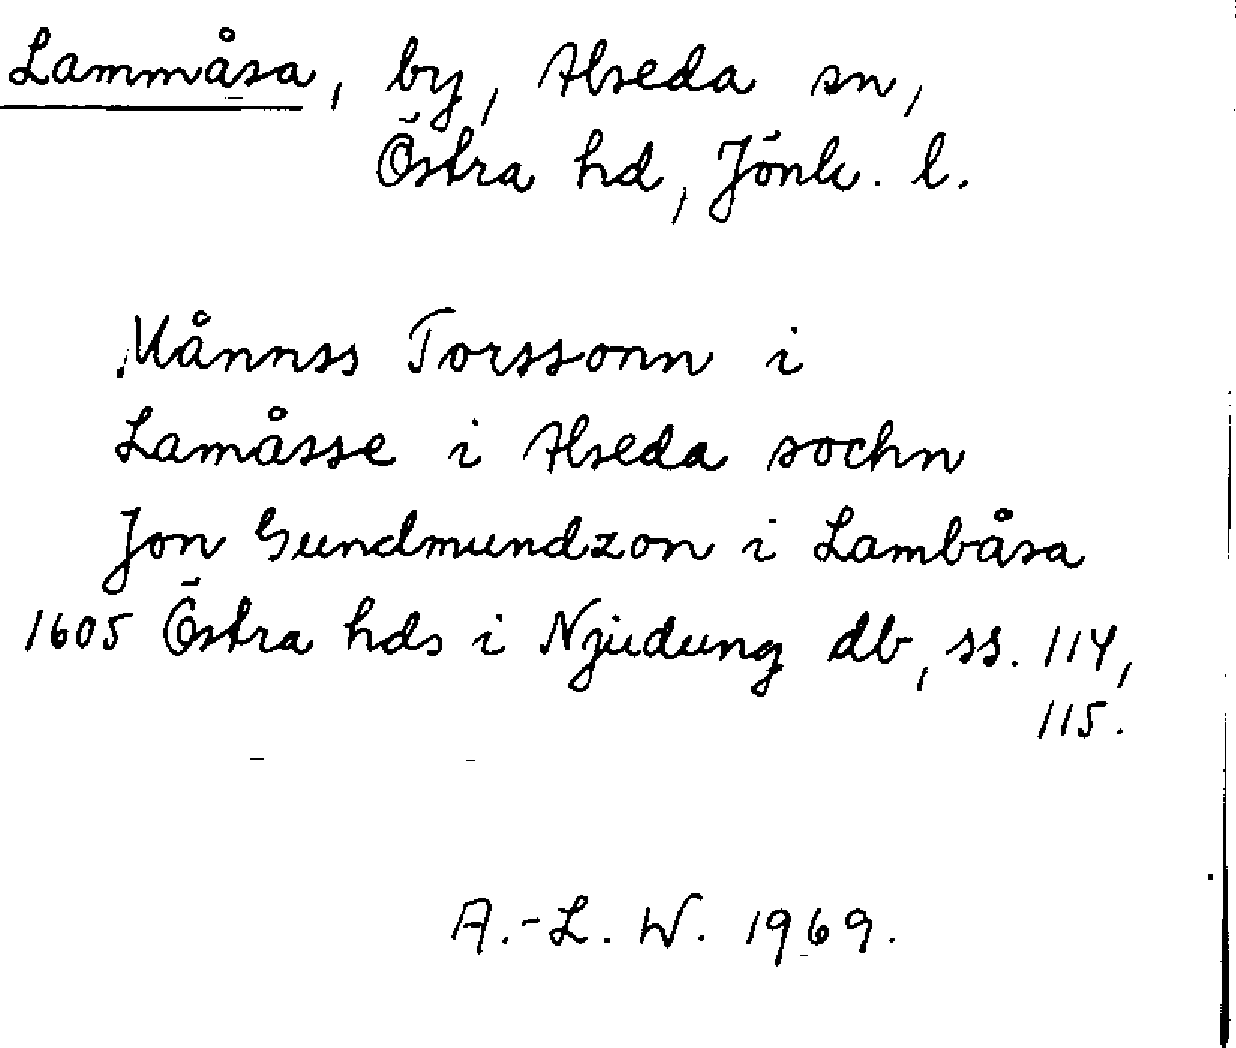 Lammåsa, by, Alseda sn,
Östra hd, Jönk. l.
Månnss Torssonn i
Lamåsse i Alseda sochn
Jon Gundmundzon i Lambåsa
1605 Östra hds i Njudung db, ss. 114,
115.
A.-L. W. 1969.